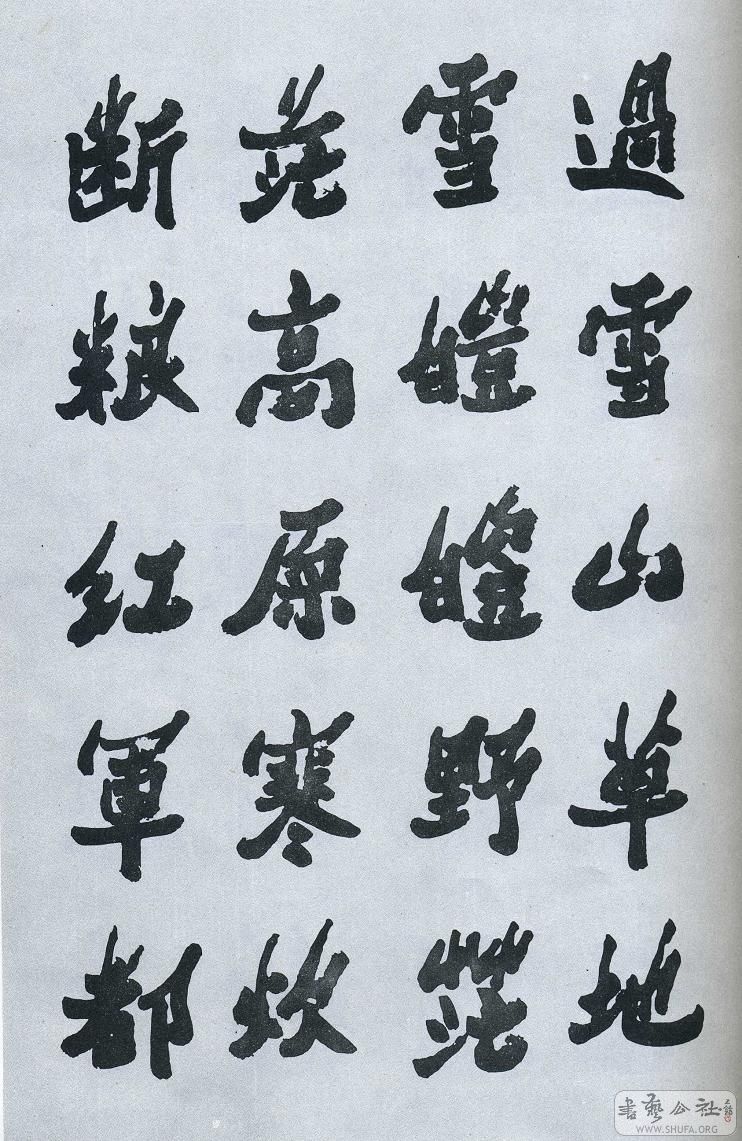 過雪山草地
雪皑皑野茫
茫高原寒炊
断粮红軍都
書藝公社
WWW.SHUFA.ORG